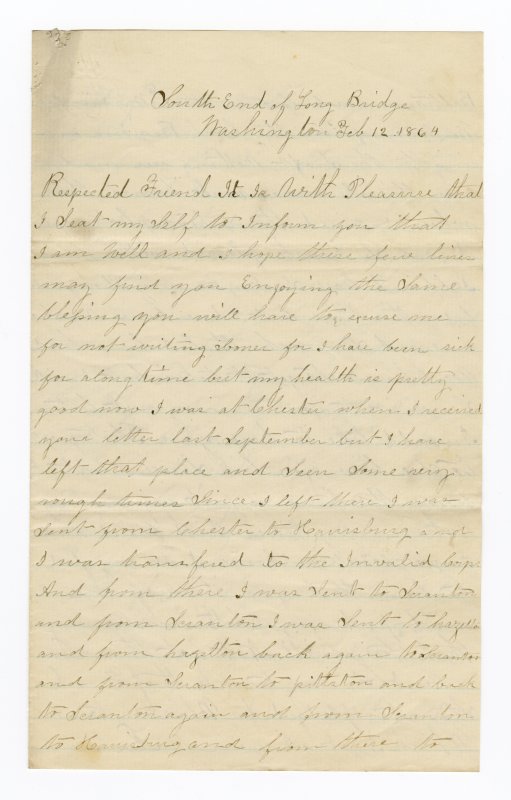 South End of Long Bridge
Washington Feb 12. 1864
Respected Friend It Is With Pleasure that
I Seat my Self to Inform you that
I am Well and I hope these few lines
may find you Enjoying the Same
blessing you will have to excuse me
for not writing Soner for I have been sick
for along time but my health is pretty
good now I was at Chester when I received
your letter last September but I have
left that place and Seen Some very
rough times Since I left there I was
Sent from Chester to Harrisburg and
I was transfered to the Invalid Corps
And from there I was Sent to Scranton
and from Scranton I was Sent to hazelton
and from hazelton back again to Scranton
and from Scranton to pittston and back
to Scranton again and from Scranton
to Harrisburg and from there to